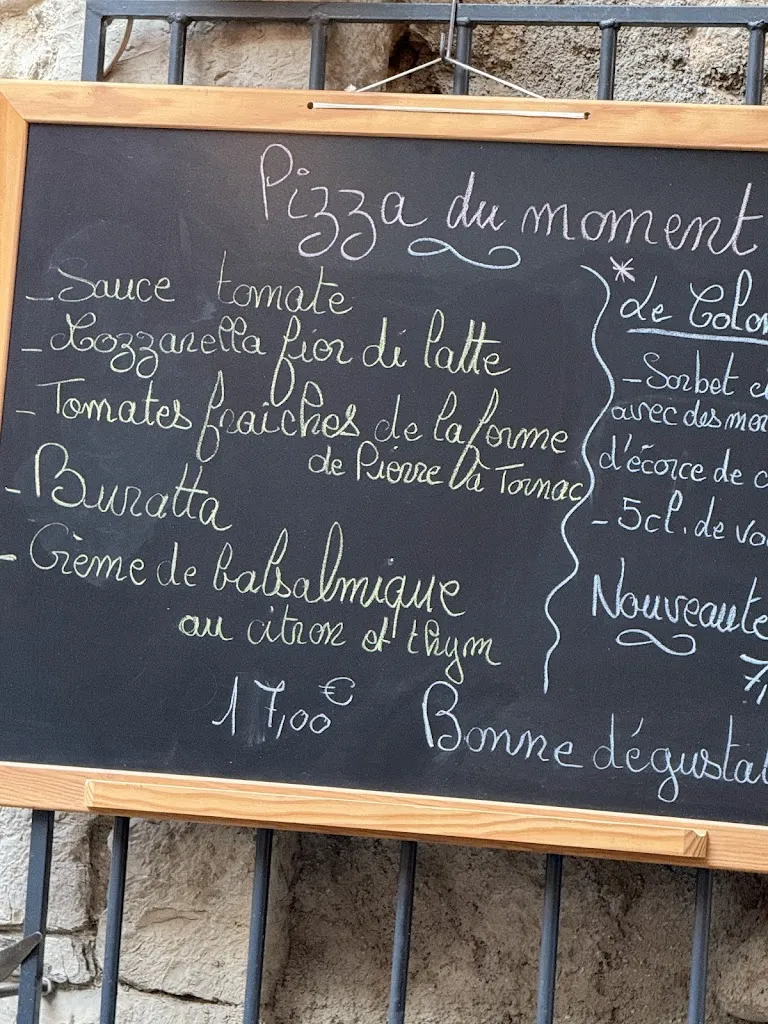 Pizza du moment
- Sauce tomate
- Mozzarella fior di latte
- Tomates fraîches de la ferme
de Pierre à Tornac
- Buratta
- Crème de balsalmique
au citron et thym
17,00€
* Le Colo
- Sorbet ci
avec des mor
d'écorce de c
- 5cl. de vo
Nouveauté
7,
Bonne dégustat